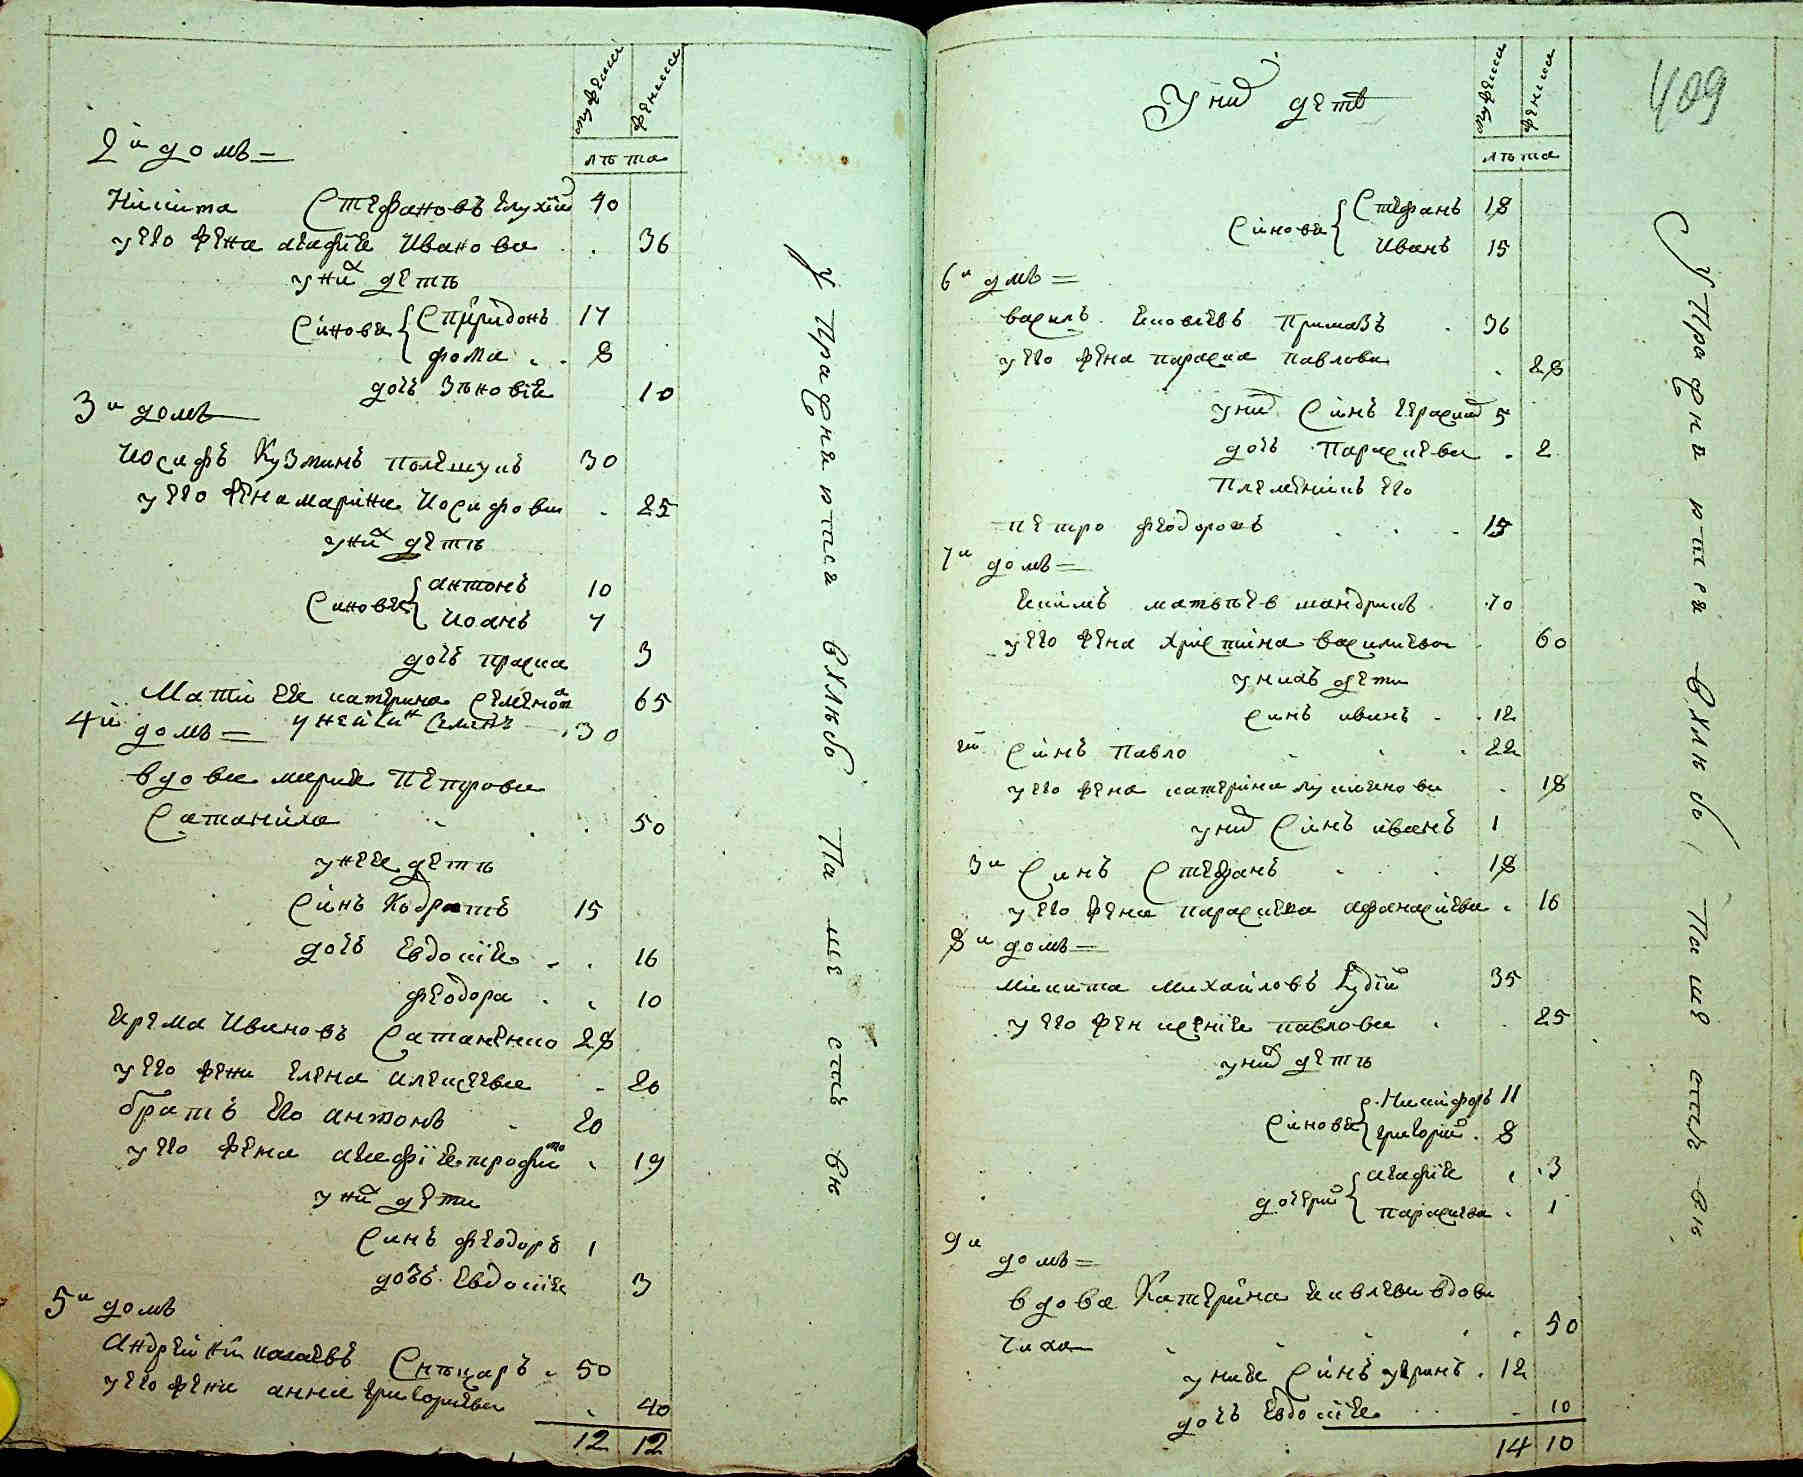 мужеска
женска
лѣта
2й домъ =
Никита Стефановъ Глухій 40
у его жена агафія Иванова 36
у них дѣтъ
Синовя { Спиридонъ 17
фома 8
дочъ Зѣновія 10
3й домъ
Иосифъ Кузминъ полешукъ 30
у его жена марина Иосифова 25
у них дѣтъ
Синовя { антонъ 10
Иоанъ 7
дочъ праска 3
Мати ея катерина Семенова 65
у ней синъ Семенъ 30
4й домъ =
вдова мария Петрова
Сатаниха 50
у нея дѣтъ
Синъ Кодратъ 15
дочъ Евдокія 16
феодора 10
Ярема Ивановъ Сатаненко 28
у его жена Елена алексеева 20
братъ его антонъ 20
у его жена агафія трофимо 19
у них дети
Синъ феодоръ 1
дочъ Евдокія 3
5й домъ
андрей николаевъ Снѣцаръ 50
у его жена анна григориева 40
12 12
409
У них дѣтъ
мужеска
женска
лѣта
Синовя { Стефанъ 18
Иванъ 15
6й дмъ =
василъ Яковлевъ Примакъ 36
у его жена параска павлова 28
у них Синъ герасим 5
дочъ Параскева 2
Племенникъ его
петро феодоровъ 15
7й домъ =
Екимъ матвѣев шандрикъ 70
у его жена Христина василиева 60
у нихъ дети
Синъ иванъ 12
2й Синъ Павло 22
у его жена катерина лукиянова 18
у них Синъ иванъ 1
3й Синъ Стефанъ 18
у его жена параскева афанасиева 16
8й домъ =
микита михайловъ Кудій 35
у его жен ксенія павлова 25
у них дѣтъ
Синовя { Никифоръ 11
григорий 8
дочери { агафія 3
параскева 1
9й
домъ =
вдова Катерина Яковлева вдови
чиха 50
у нея Синъ уеринъ 12
дочъ Евдокія 10
14 10